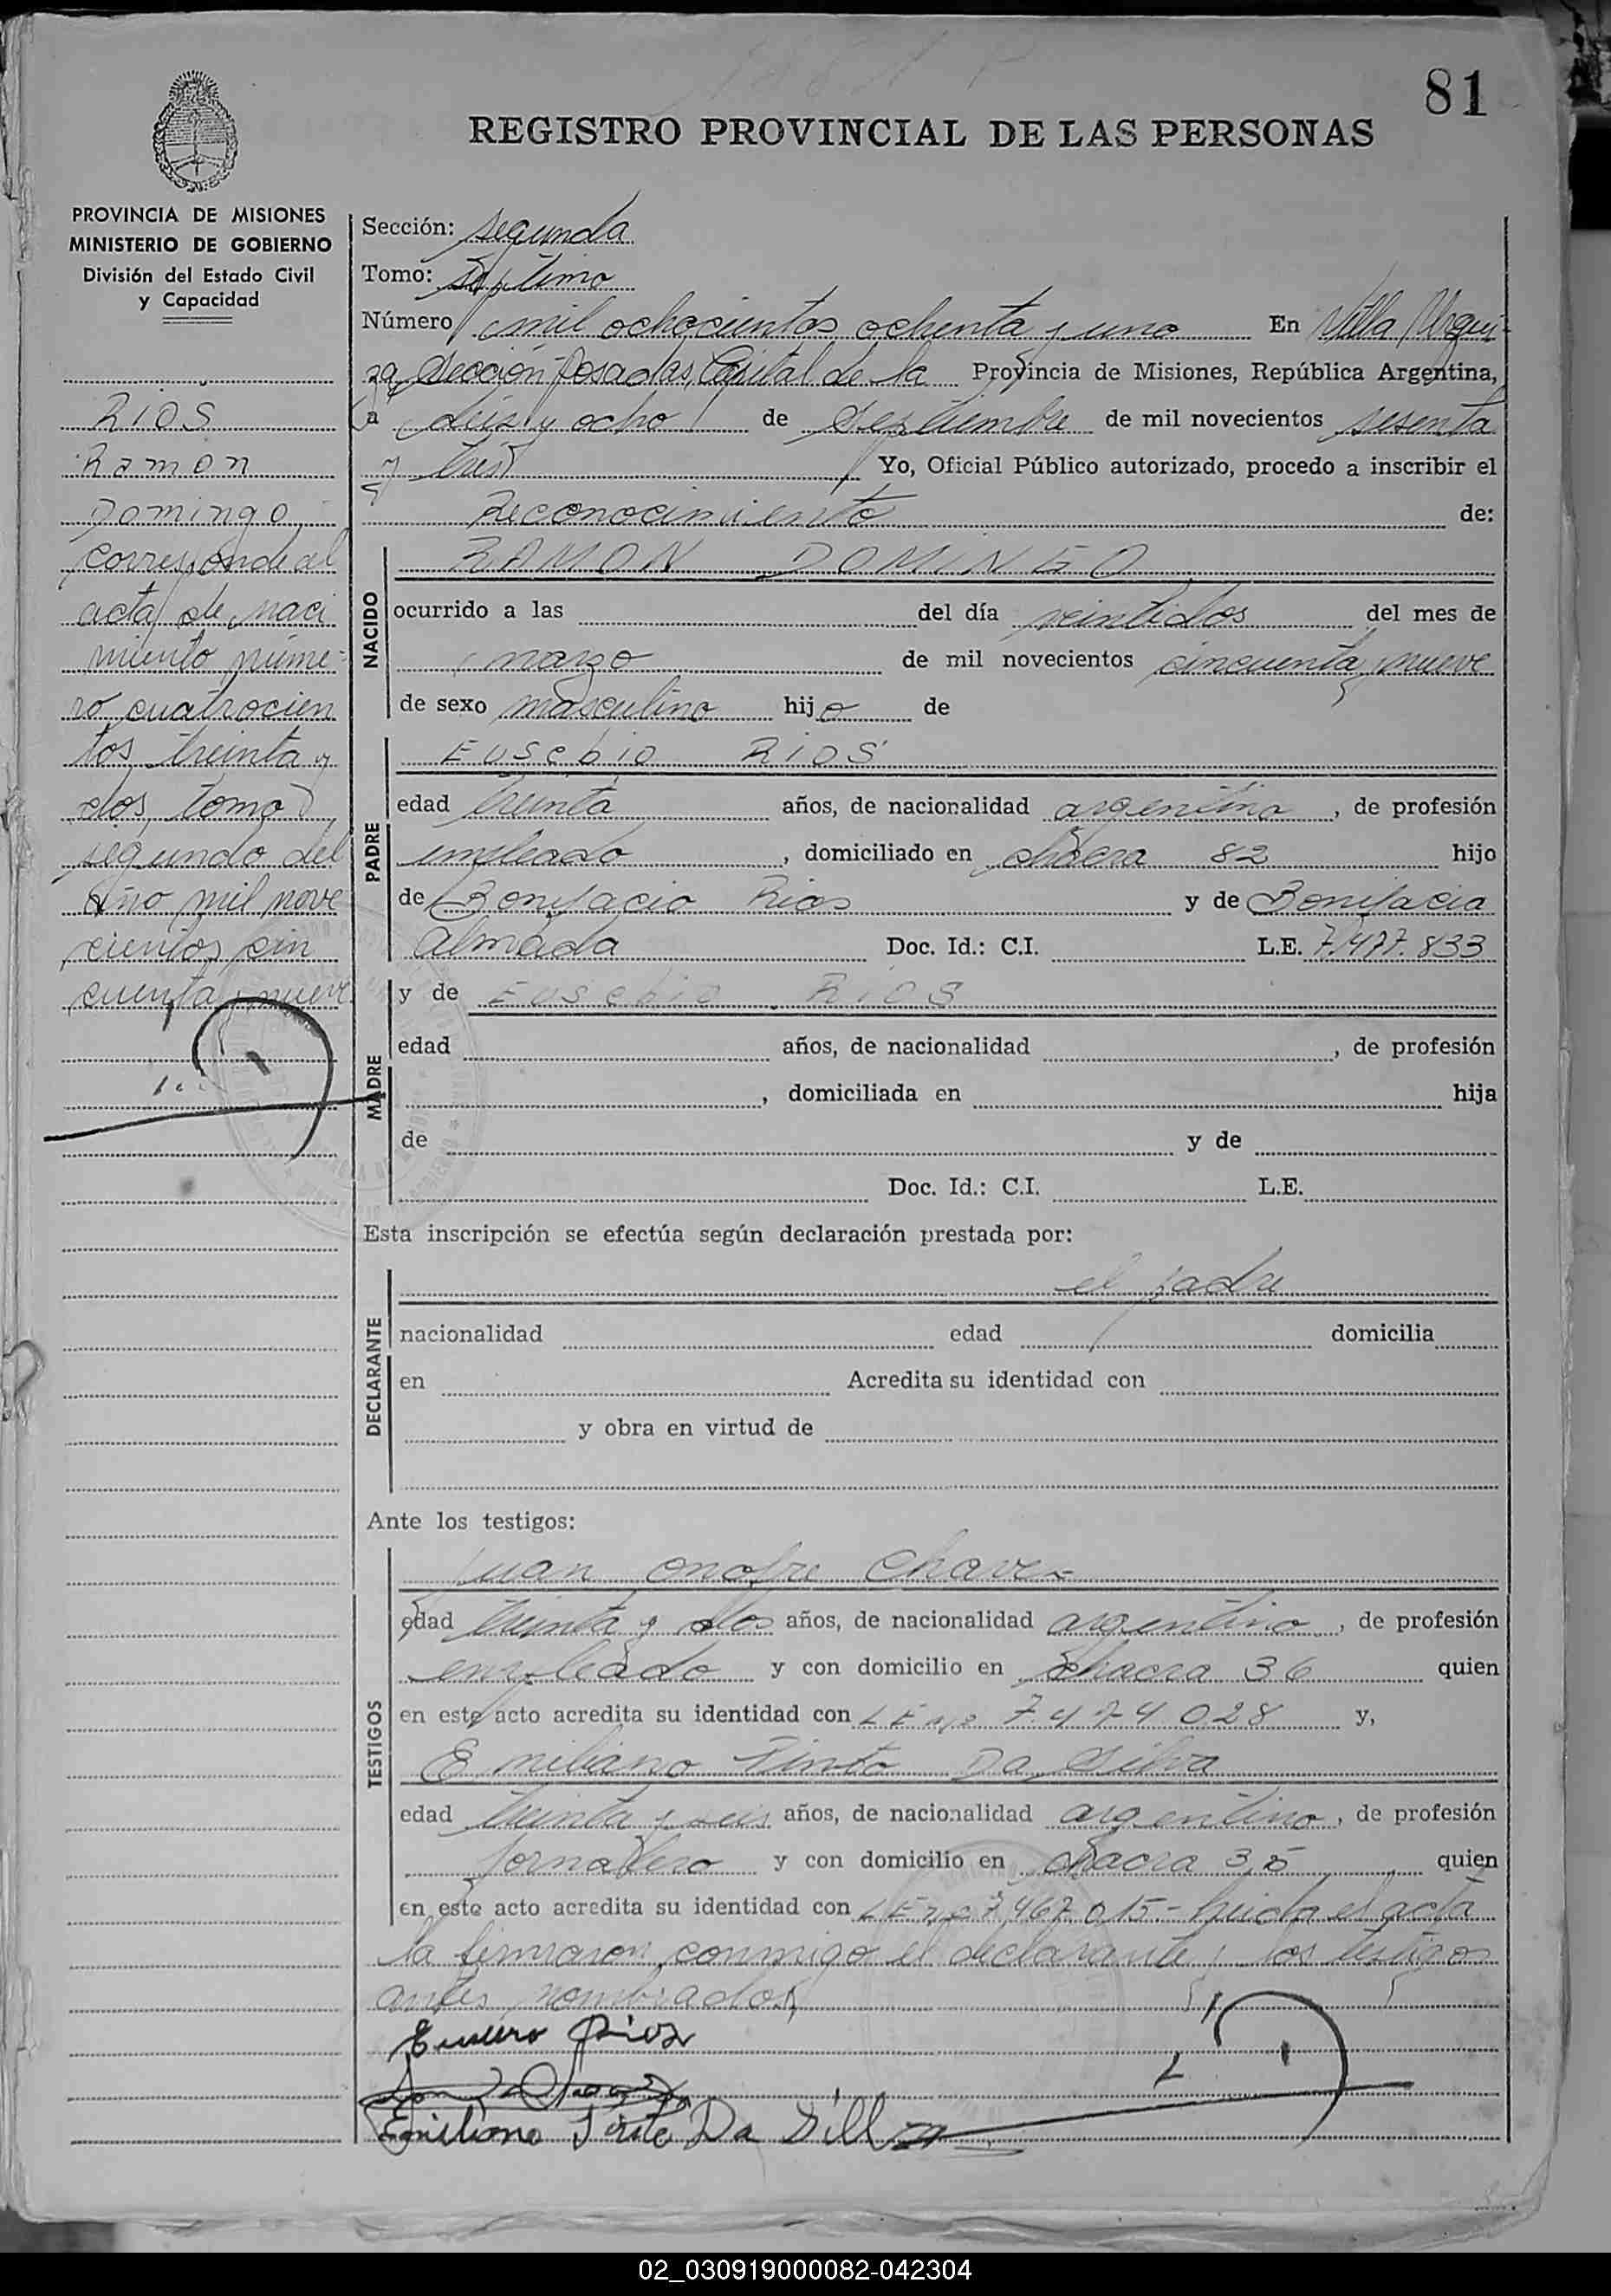 81
REGISTRO PROVINCIAL DE LAS PERSONAS
PROVINCIA DE MISIONES
MINISTERIO DE GOBIERNO
División del Estado Civil
y Capacidad
RIOS
Ramon
Domingo
corresponde al
acta de naci
miento núme-
ro cuatrocien
tos treinta y
dos, tomo
segundo del
año mil nove
cientos cin
cuenta y nueve
Sección: segunda
Tomo: séptimo
Número mil ochocientos ochenta y uno En Villa Urqui-
za, Sección Posadas, Capital de la Provincia de Misiones, República Argentina,
a diez y ocho de Septiembre de mil novecientos sesenta
y tres Yo, Oficial Público autorizado, procedo a inscribir el
Reconocimiento de:
NACIDO
RAMON DOMINGO
ocurrido a las del día veintidos del mes de
marzo de mil novecientos cincuenta y nueve
de sexo masculino hijo de
PADRE
Eusebio RIOS
edad treinta años, de nacionalidad argentino, de profesión
empleado, domiciliado en chacra 82 hijo
de Bonifacio Rios y de Bonifacia
Almada Doc. Id.: C.I. L.E. 7.477.833
MADRE
y de Eusebio RIOS
edad años, de nacionalidad , de profesión
, domiciliada en hija
de y de
Doc. Id.: C.I. L.E.
Esta inscripción se efectúa según declaración prestada por:
DECLARANTE
el padre
nacionalidad edad domicilia
en Acredita su identidad con
y obra en virtud de
Ante los testigos:
TESTIGOS
Juan Onofre Chavez
edad treinta y dos años, de nacionalidad argentino, de profesión
empleado y con domicilio en chacra 36 quien
en este acto acredita su identidad con L E nº 7.474.028 y,
Emiliano Pinto Da Silva
edad treinta y seis años, de nacionalidad argentino, de profesión
jornalero y con domicilio en chacra 35 quien
en este acto acredita su identidad con L E nº 7.467.015.- Leida el acta
la firmaron conmigo el declarante y los testigos
antes nombrados
Rios
Emiliano Da Sill
02_030919000082-042304